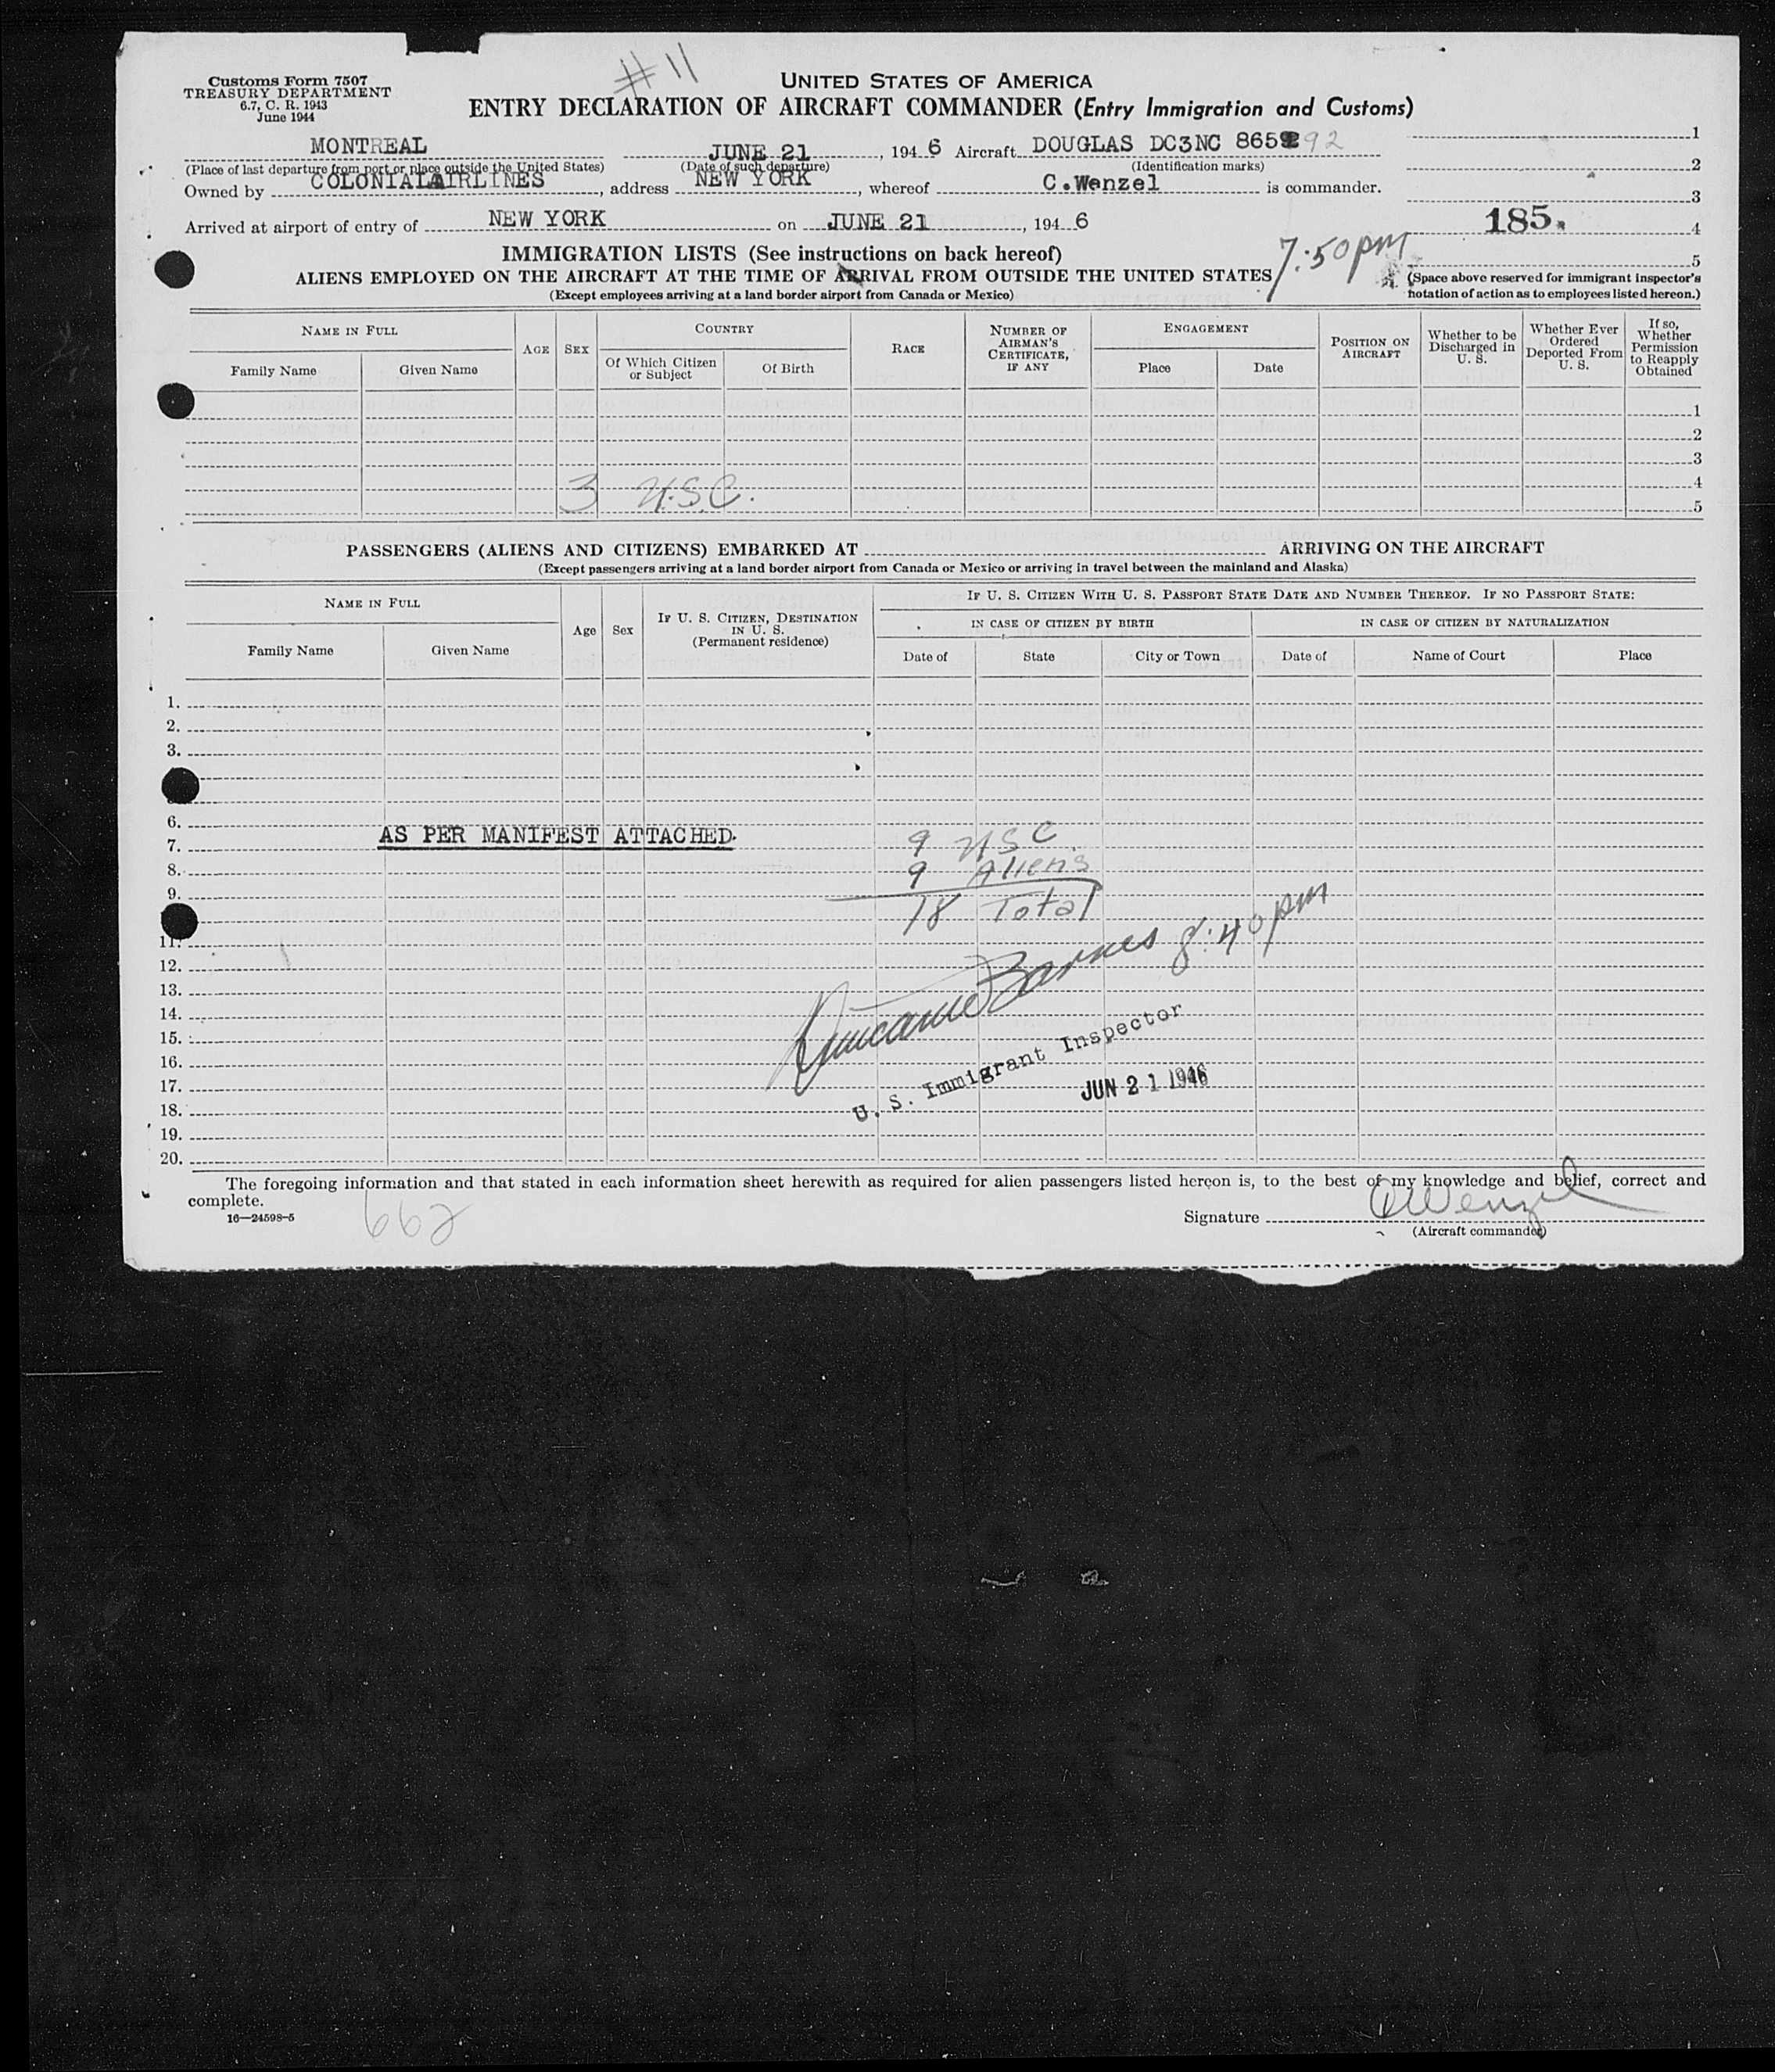 Customs Form 7507
TREASURY DEPARTMENT
6.7, C. R. 1943
June 1944
# 11
UNITED STATES OF AMERICA
ENTRY DECLARATION OF AIRCRAFT COMMANDER (Entry Immigration and Customs)
MONTREAL JUNE 21, 194 6 Aircraft DOUGLAS DC3NC 865 92
(Place of last departure from port or place outside the United States) (Date of such departure) (Identification marks)
Owned by COLONIAL AIRLINES, address NEW YORK, whereof C.Wenzel is commander.
Arrived at airport of entry of NEW YORK on JUNE 21, 194 6
1
2
3
185. 4
5
7:50 pm
(Space above reserved for immigrant inspector's
notation of action as to employees listed hereon.)
IMMIGRATION LISTS (See instructions on back hereof)
ALIENS EMPLOYED ON THE AIRCRAFT AT THE TIME OF ARRIVAL FROM OUTSIDE THE UNITED STATES
(Except employees arriving at a land border airport from Canada or Mexico)
NAME IN FULL
Family Name
Given Name
AGE
SEX
COUNTRY
Of Which Citizen
or Subject
Of Birth
RACE
NUMBER OF
AIRMAN'S
CERTIFICATE,
IF ANY
ENGAGEMENT
Place
Date
POSITION ON
AIRCRAFT
Whether to be
Discharged in
U. S.
Whether Ever
Ordered
Deported From
U. S.
If so,
Whether
Permission
to Reapply
Obtained
1
2
3
4
3 U.S.C.
5
PASSENGERS (ALIENS AND CITIZENS) EMBARKED AT ARRIVING ON THE AIRCRAFT
(Except passengers arriving at a land border airport from Canada or Mexico or arriving in travel between the mainland and Alaska)
NAME IN FULL
Family Name
Given Name
Age
Sex
IF U. S. CITIZEN, DESTINATION
IN U. S.
(Permanent residence)
IF U. S. CITIZEN WITH U. S. PASSPORT STATE DATE AND NUMBER THEREOF. IF NO PASSPORT STATE:
IN CASE OF CITIZEN BY BIRTH
IN CASE OF CITIZEN BY NATURALIZATION
Date of
State
City or Town
Date of
Name of Court
Place
1.
2.
3.
6.
AS PER MANIFEST ATTACHED.
7. 9 USC
8. 9 Aliens
9.
18 Total
11.
Barnes 8:40 pm
12.
13.
14.
15.
16.
U. S. Immigrant Inspector
17.
JUN 21 1946
18.
19.
20.
The foregoing information and that stated in each information sheet herewith as required for alien passengers listed hereon is, to the best of my knowledge and belief, correct and
complete.
16—24598-5
662
Signature CWenzel
(Aircraft commander)